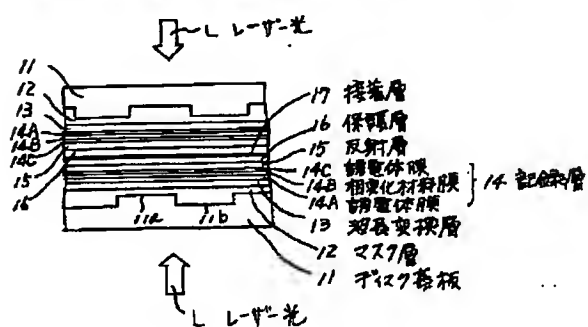 L レーザー光
11
12
13
14A
14B
14C
15
16
17 接着層
16 保護層
15 反射層
14C 誘電体膜
14B 相変化材料膜
14A 誘電体膜
14 記録層
13 波長変換層
12 マスク層
11 ディスク基板
11a
11b
L レーザー光